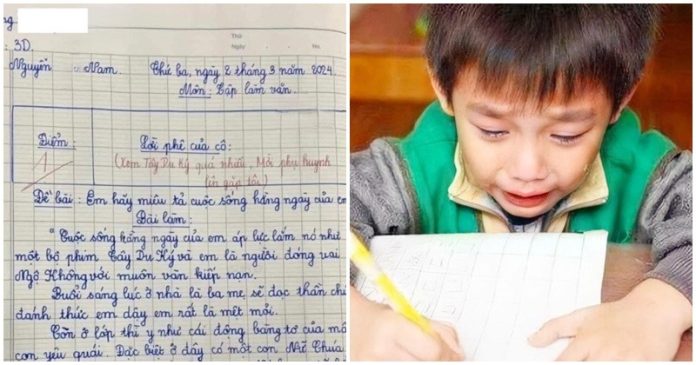 Thứ
Ngày No.
: 3D.
Nguyễn Nam. Thứ ba, ngày 2 tháng 3 năm 2024.
Môn: Tập làm văn.
Điểm: Lời phê của cô:
1 (Xem Tây Du Ký quá nhiều, Mời phụ huynh
lên gặp tôi)
Đề bài: Em hãy miêu tả cuộc sống hằng ngày của em
Bài làm:
"Cuộc sống hằng ngày của em áp lực lắm nó như
một bộ phim Tây Du Ký và em là người đóng vai
Ngộ Không với muôn vàn kiếp nạn.
Buổi sáng lúc ở nhà là ba mẹ sẽ đọc thần chú
đánh thức em dậy em rất là mệt mỏi.
Còn ở lớp thì y như cái động bàng tơ của mấ
con yêu quái. Đặc biệt ở đây có một con Nữ Chúa